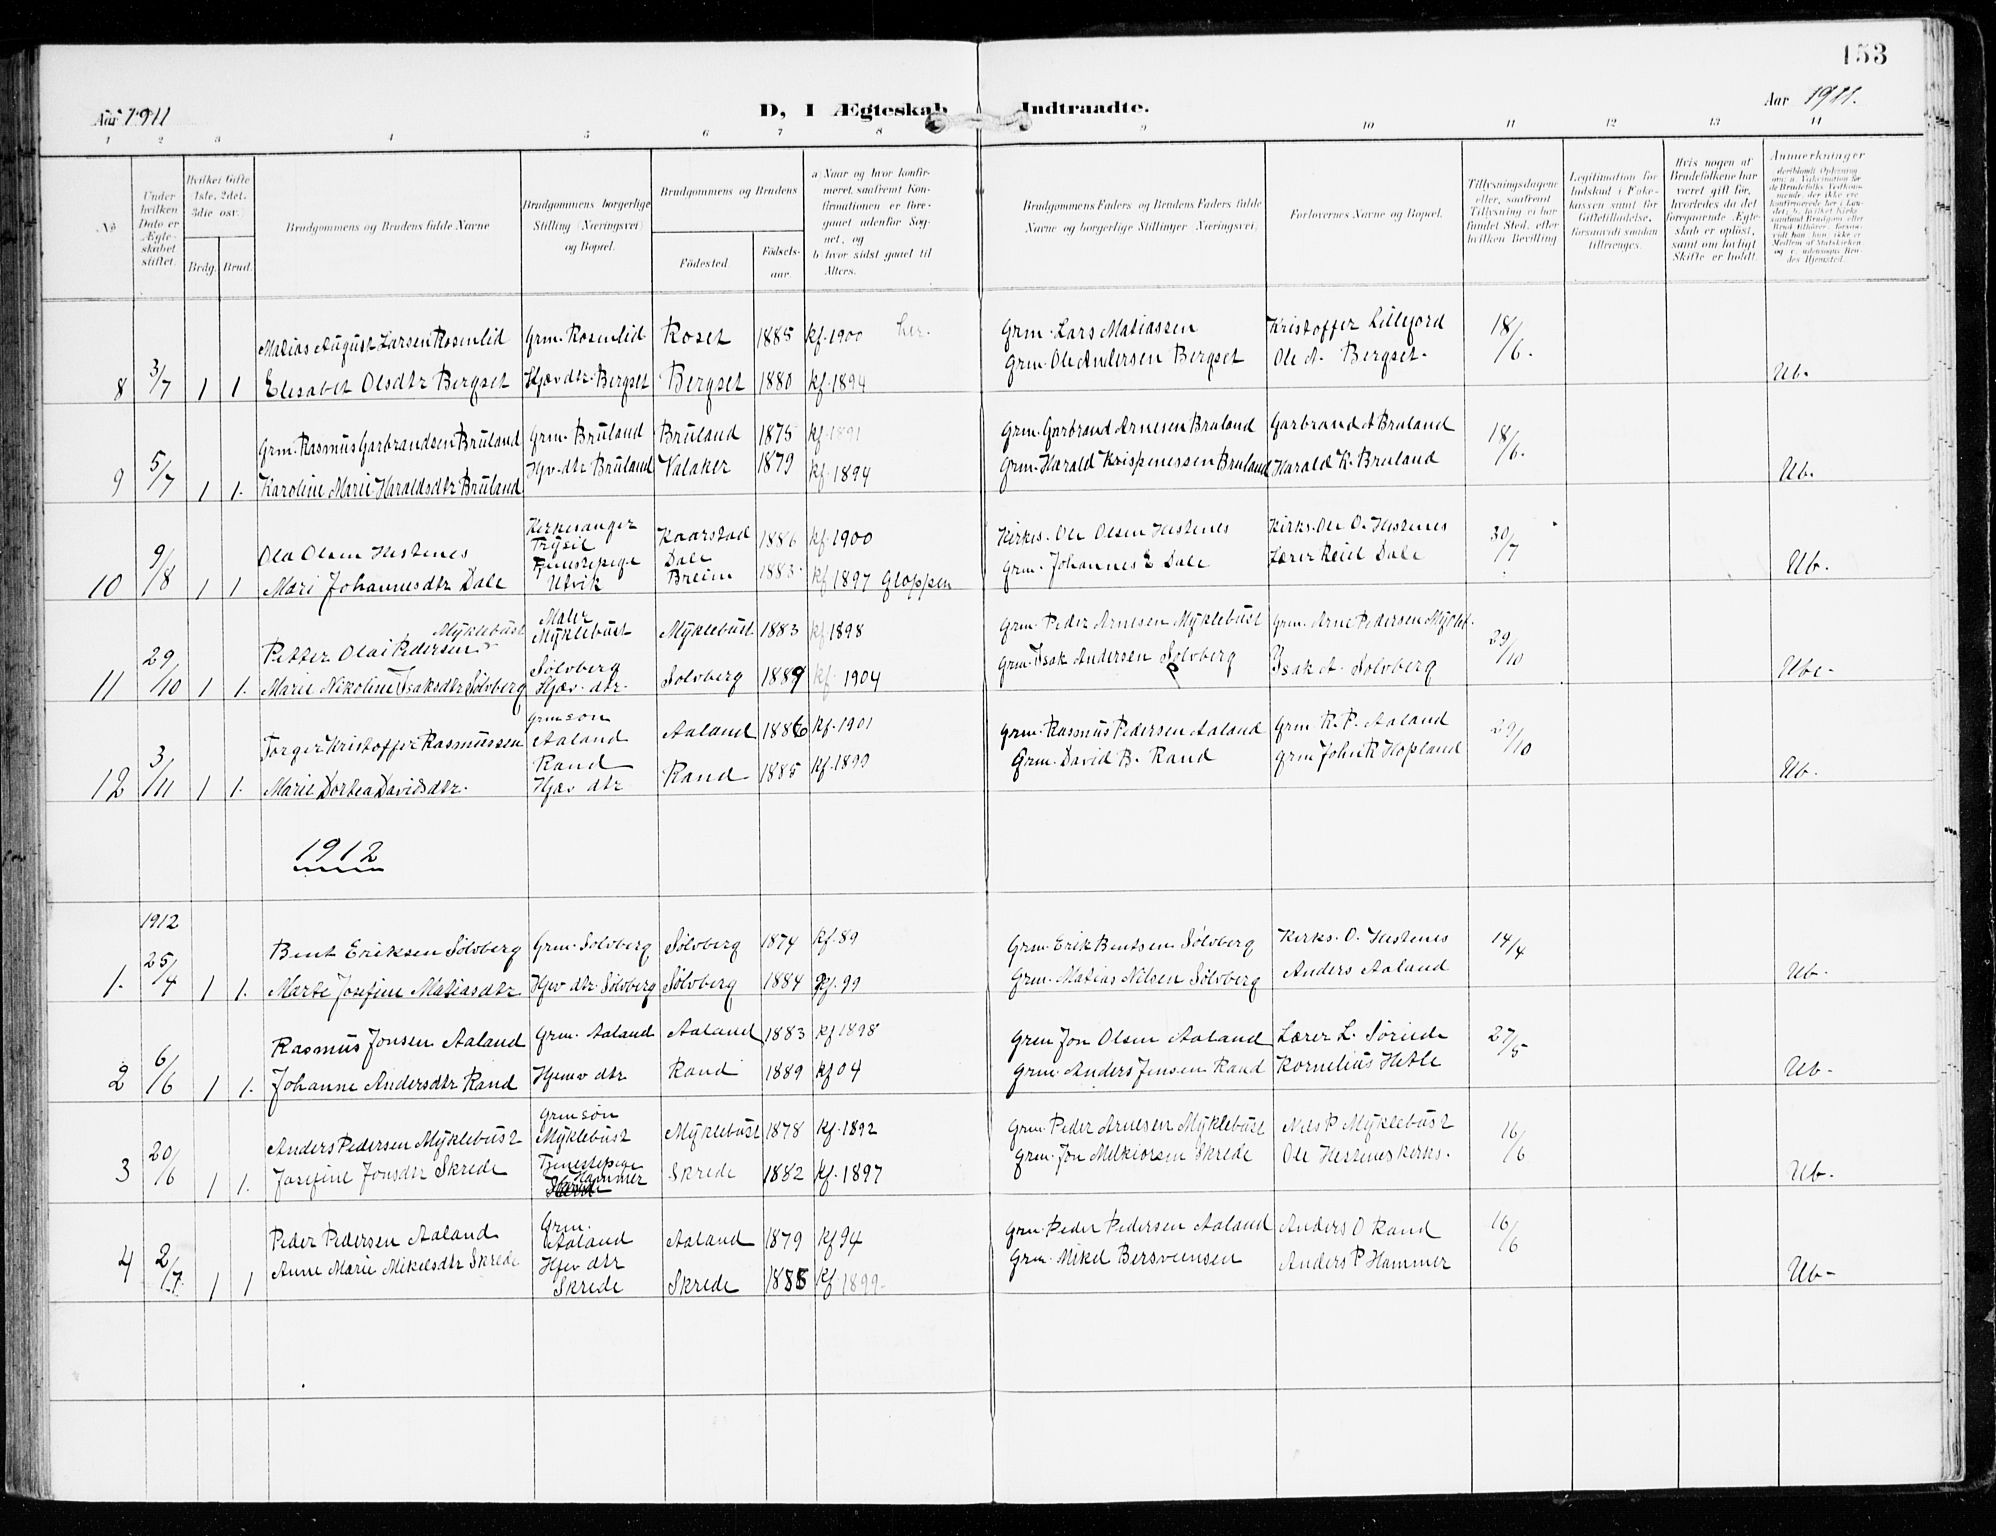 153
Aar 1911
D, I Ægteskab Indtraadte.
Aar 1911.
1 2 3 4 5 6 7 8 9 10 11 12 13 14
No
Under hvilken Dato er Ægteskabet stiftet.
Hvilket Gifte 1ste, 2det, 3die osv.
Brdg. Brud.
Brudgommens og Brudens fulde Navne
Brudgommens borgerlige Stilling (Næringsvei) og Bopæl.
Brudgommens og Brudens
Fødested.
Fødselsaar.
a) Naar og hvor konfirmeret, saafremt Konfirmationen er foregaaet udenfor Sognet, og
b) hvor sidst gaaet til Alters.
Brudgommens Faders og Brudens Faders fulde Navne og borgerlige Stillinger (Næringsvei).
Forlovernes Navne og Bopæl.
Tillysningsdagene eller, saafremt Tillysning ei har fundet Sted, efter hvilken Bevilling
Legitimation for Indskud i Enkekassen samt for Giftetilladelse, forsaavidt saadan tiltrænges.
Hvis nogen af Brudefolkene har været gift før, hvorledes da det foregaaende Ægteskab er opløst, samt om lovligt Skifte er holdt.
Anmærkninger
8 3/7 1 1
Matias August Larsen Rosenlid Grm. Rosenlid Roset 1885 kf. 1900 her. Grm. Lars Matiassen Kristoffer Lillefjord 18/6.
Elisabet Olsdtr Bergset Hjævdtr. Bergset Bergset 1880 kf. 1894 Grm. Ole Andersen Bergset Ole A. Bergset. Ub.
9 5/7 1 1.
Grm. Rasmus Garbrandsen Bruland Grm. Bruland Bruland 1875 kf. 1891 Grm. Garbrand Arnesen Bruland Garbrand A Bruland 18/6.
Karoline Marie Haraldsdtr Bruland Hjv. dtr Bruland Valaker 1879 kf. 1894 Grm. Harald Krispenessen Bruland Harald K. Bruland Ub.
10 9/8 1 1
Ola Olsen Hestenes Kirkesanger Trysil Kaarstad 1886 kf. 1900 Kirks. Ole Olsen Hestenes Kirks. Ole O. Hestenes 30/7
Mari Johannesdtr Dale Tjenestepige Utvik Dale Breim 1883. kf 1897 Gloppen Grm. Johannes Dale Lærer Reiel Dale Ub.
11 29/10 1 1.
Petter Olai Pedersen Myklebust Maler Myklebust Myklebust 1883 kf 1898 Grm. Peder Arnesen Myklebust Grm. Arne Pedersen Myckl. 29/10
Marie Nikoline Isaksdtr Sølvberg Sølvberg Hjæv. dtr. Solvberg 1889 kf. 1904 Grm. Isak Andersen Solvberg Isak A. Solvberg Ub.
12 3/11 1 1.
Torger Kristoffer Rasmussen Grmsøn Aaland Aaland 1886 kf. 1901 Grm. Rasmus Pedersen Aaland Grm R. P. Aaland 29/10
Marie Dortea Davidsdtr. Rand Hjæv dtr Rand 1885 kf. 1899 Grm. David B. Rand Grm John R Hopland Ub.
1912
1912
1. 25/4 1 1.
Bent Eriksen Sølvberg Grm. Solvberg Sølvberg 1874 kf. 89 Grm. Erik Bentsen Sølvberg Kirks. O. Hestenes 14/4
Marte Josefine Matiasdtr Hjev dtr Sølvberg Sølvberg 1884 kf. 99 Grm. Matias Nilsen Sølvberg Anders Aaland Ub.
2 6/6 1 1.
Rasmus Jonsen Aaland Grm. Aaland Aaland 1883 kf 1898 Grm Jon Olsen Aaland Lærer L. Søriede 27/5
Johanne Andersdtr Rand Hjemv dtr Rand 1889 kf 04 Grm. Anders Jensen Rand Kornelius Hetle Ub.
3 20/6 1 1.
Anders Pedersen Myklebust Grmsøn Myklebust Myklebust 1878 kf. 1892 Grm. Peder Arnesen Myklebust Nils P Myklebust 16/6
Josefine Jonsdtr Skrede Tjenestepige Hammer Skrede 1882 kf. 1897 Grm. Jon Melkiorsen Skrede Ole Hestenes kirks. Ub.
4 2/7. 1 1
Peder Pedersen Aaland Grm. Aaland Aaland 1879 kf 94 Grm. Peder Pedersen Aaland Anders O Rand 16/6
Anne Marie Mikelsdtr Skrede Hjev dtr Skrede Skrede 1885 kf 1899 Grm. Mikel Bersveinsen Anders P Hammer Ub.